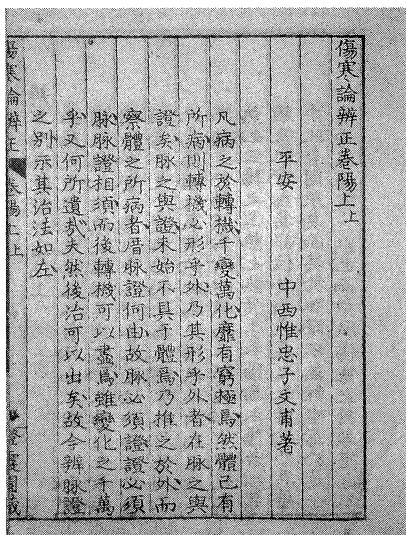 傷寒論辨正卷陽上上
平安　中西惟忠子文甫著
凡病之於轉機千變萬化靡有窮極焉然體已有
所病則轉機必形乎外乃其形乎外者在脉之與
證矣脉之與證未始不具于體焉乃推之於外而
察體之所病者厝脉證何由故脉必須證證必須
脉脉證相須而後轉機可以盡焉雖變化之千萬
乎又何所遺哉夫然後治可以出矣故今辨脉證
之別示其治法如左
傷寒論辨正 卷陽上上